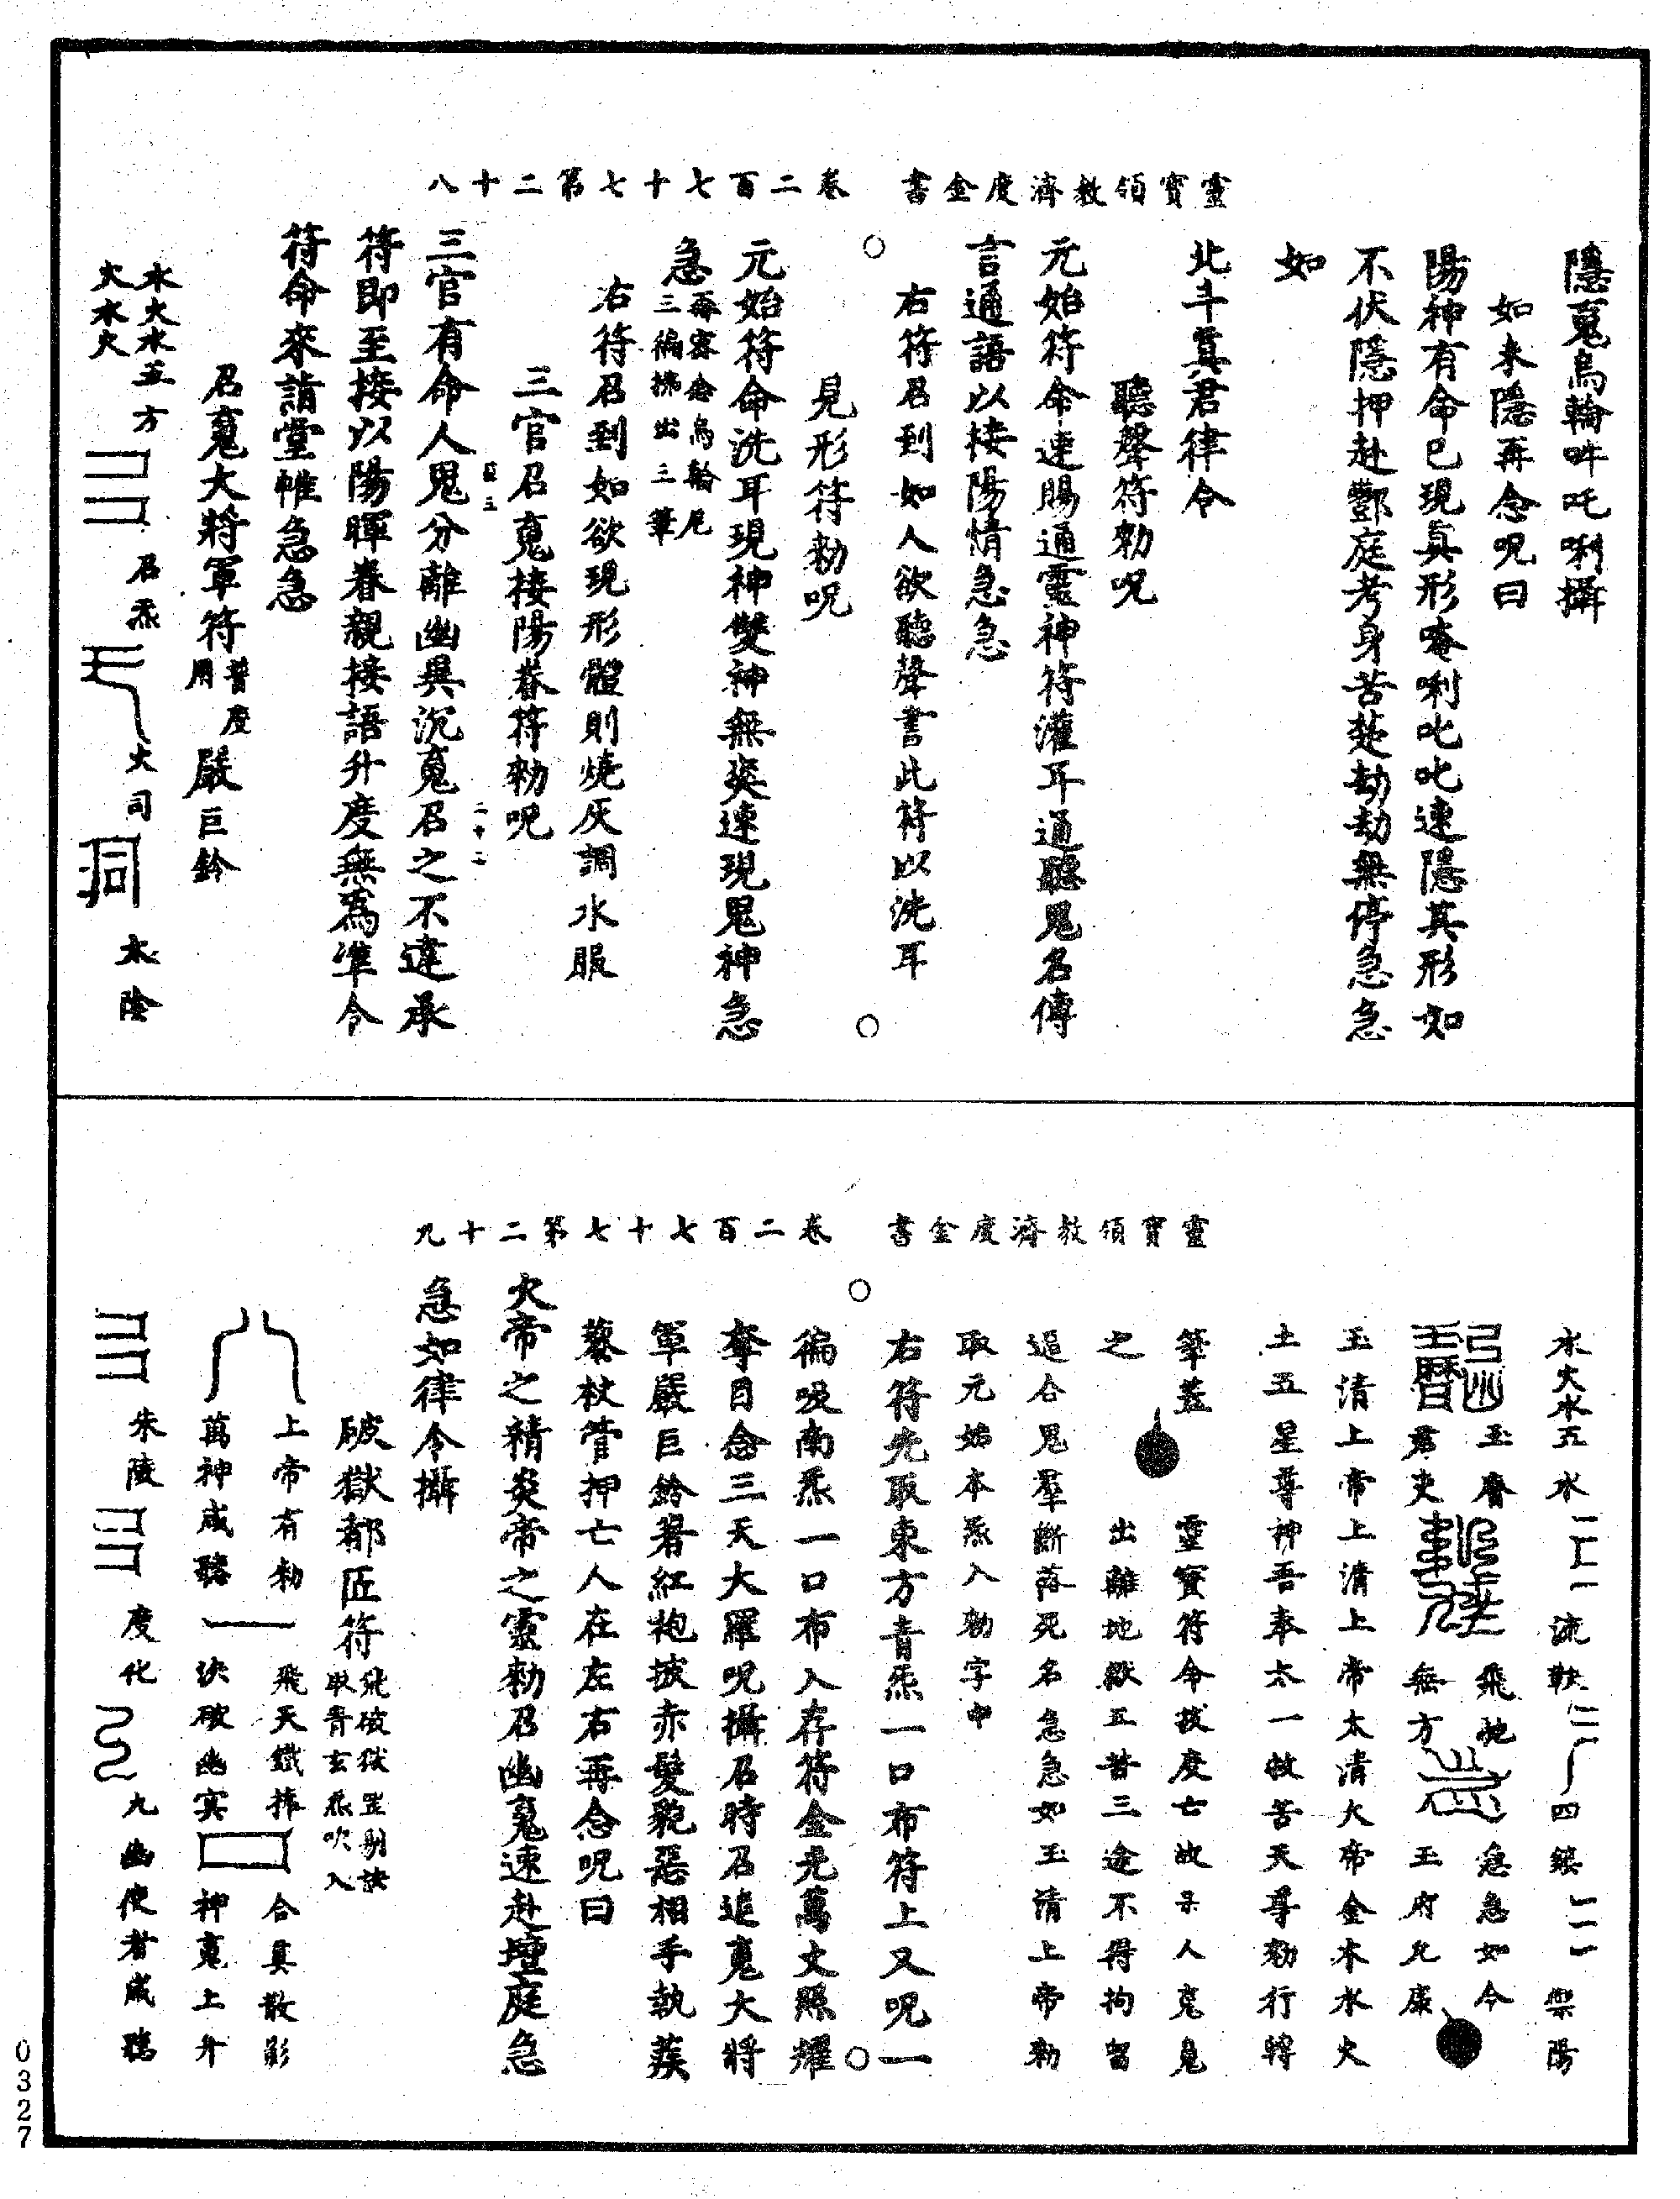 靈寶領教濟度金書　卷二百七十七第二十八
隱䰟烏輪吽吒唎攝
如未隱再念呪曰
陽神有命已現真形唵唎叱叱速隱其形如
不伏隱押赴酆庭考身苦楚劫劫無停急急
如
北斗真君律令
聽聲符勑呪
元始符命速賜通靈神符灌耳通聽鬼名傳
言通語以接陽情急急
右符召到如人欲聽聲書此符以洗耳
見形符勑呪
元始符命洗耳現神雙神無爽速現鬼神急
急再密念烏輪咒三徧拂出三筆
右符召到如欲現形體則燒灰調水服
三官召䰟接陽眷符勑呪
三官有命人鬼分離幽㒷沉䰟召之不違承
符即至接以陽暉眷親接語升度無為準令
符命來詣堂帷急急
召䰟大將軍符普度用嚴巨鈴
水火水五方召炁火司太陰
火水火
靈寶領教濟度金書　卷二百七十七第二十九
水火水五水流　四鎮　樂陽
玉　飛　急急如令
君吏　無方　玉府允康
玉清上帝上清上帝太清大帝金木水火
土五星尊神吾奉太一救苦天尊勑行將
筆蓋　靈寶符命拔度亡故某人䰟鬼
之　出離地獄五苦三途不得拘留
追合鬼羣斷落死名急急如玉清上帝勑
取元始本炁入勑字中
右符先取東方青炁一口布符上又呪一
徧吸南炁一口布入存符金光萬丈照耀
奪目念三天大羅呪攝召時召追䰟大將
軍嚴巨鈴著紅袍披赤髮貌惡相手執蒺
藜杖管押亡人在左右再念呪曰
火帝之精炎帝之靈勑召幽䰟速赴壇庭急
急如律令攝
破獄都匠符飛破獄罡剔訣取青玄炁吹入
上帝有勑　飛天鐵捧　合真散形
萬神咸聽　決破幽冥　神䰟上升
朱陵　度化　九幽使者咸聽
0327